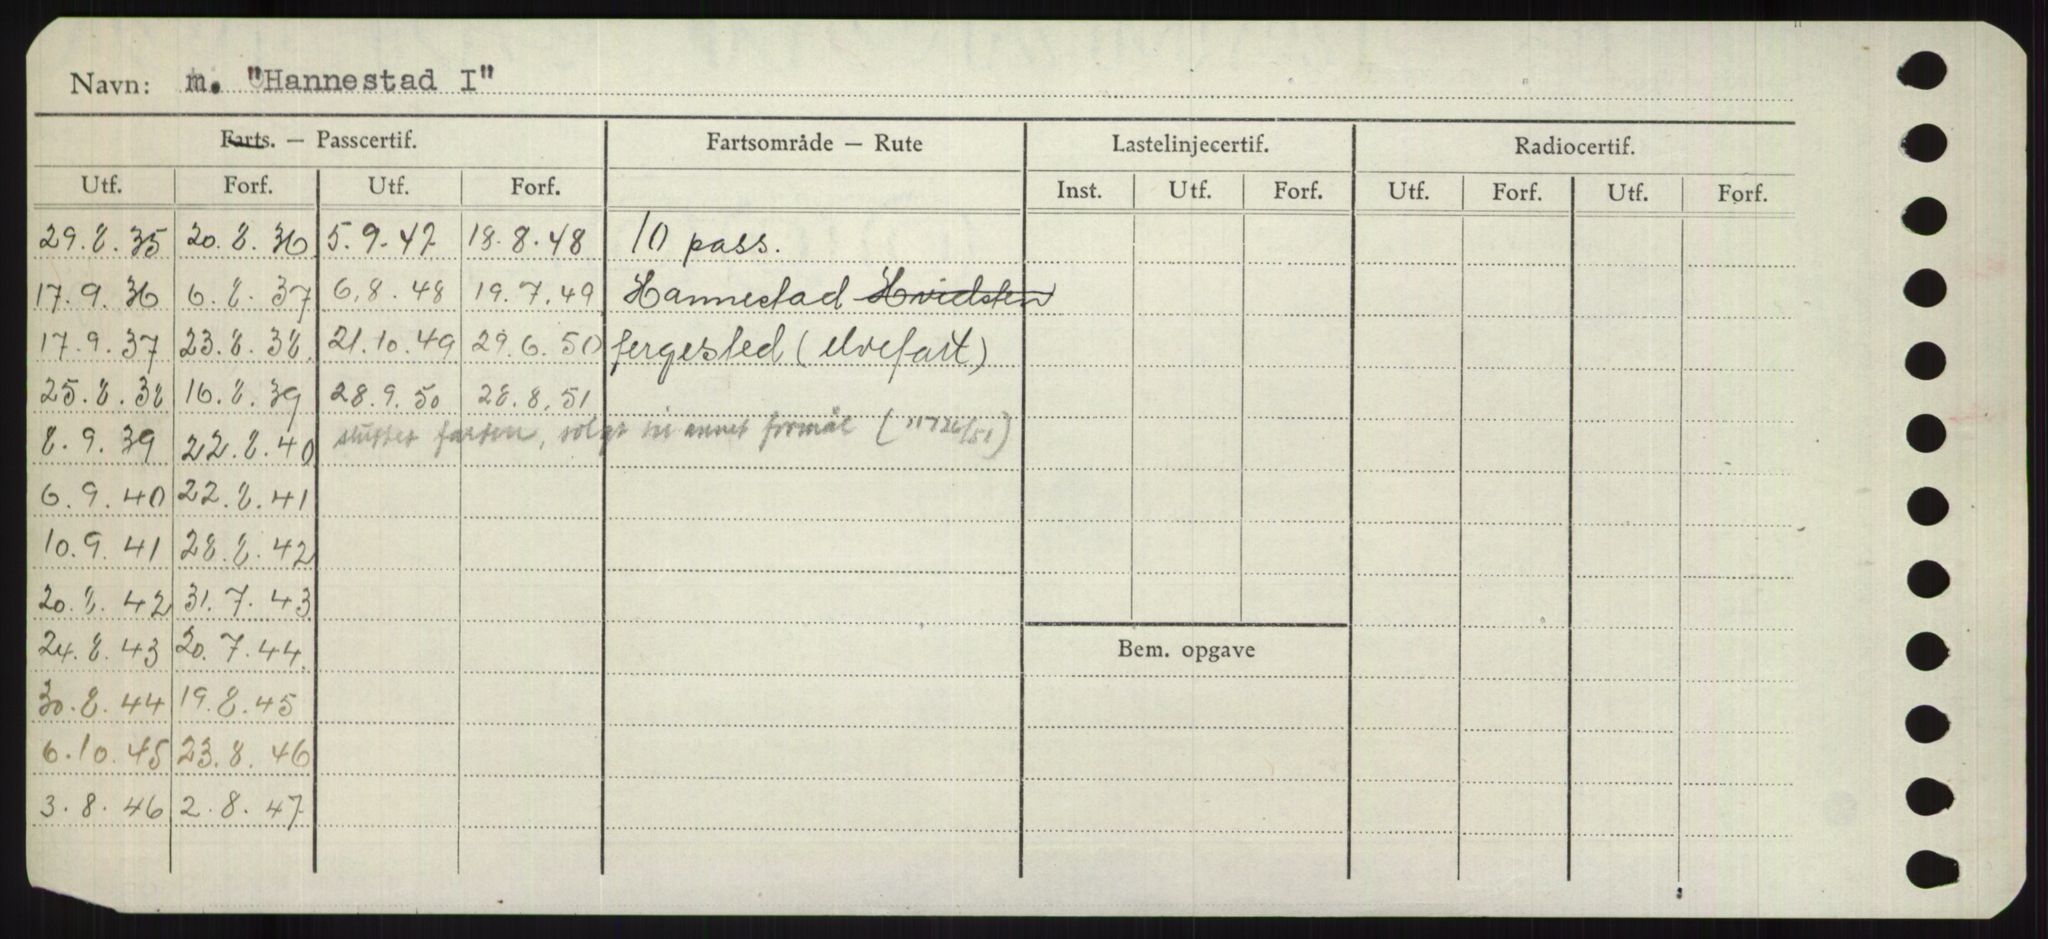 Navn: m. "Hannestad I"
Farts. — Passcertif. Fartsområde — Rute Lastelinjecertif. Radiocertif.
Utf. Forf. Utf. Forf. Inst. Utf. Forf. Utf. Forf. Utf. Forf.
29.8.35 20.8.36 5.9.47 18.8.48 10 pass.
17.9.36 6.8.37 6.8.48 19.7.49 Hannestad Hvidsten
17.9.37 23.8.38 21.10.49 29.6.50 fergested (elvefart)
25.8.38 16.8.39 28.9.50 28.8.51
8.9.39 22.8.40 sluttet farten, solgt til annet formål (11726/51)
6.9.40 22.8.41
10.9.41 28.8.42
20.8.42 31.7.43
24.8.43 20.7.44 Bem. opgave
30.8.44 19.8.45
6.10.45 23.8.46
3.8.46 2.8.47